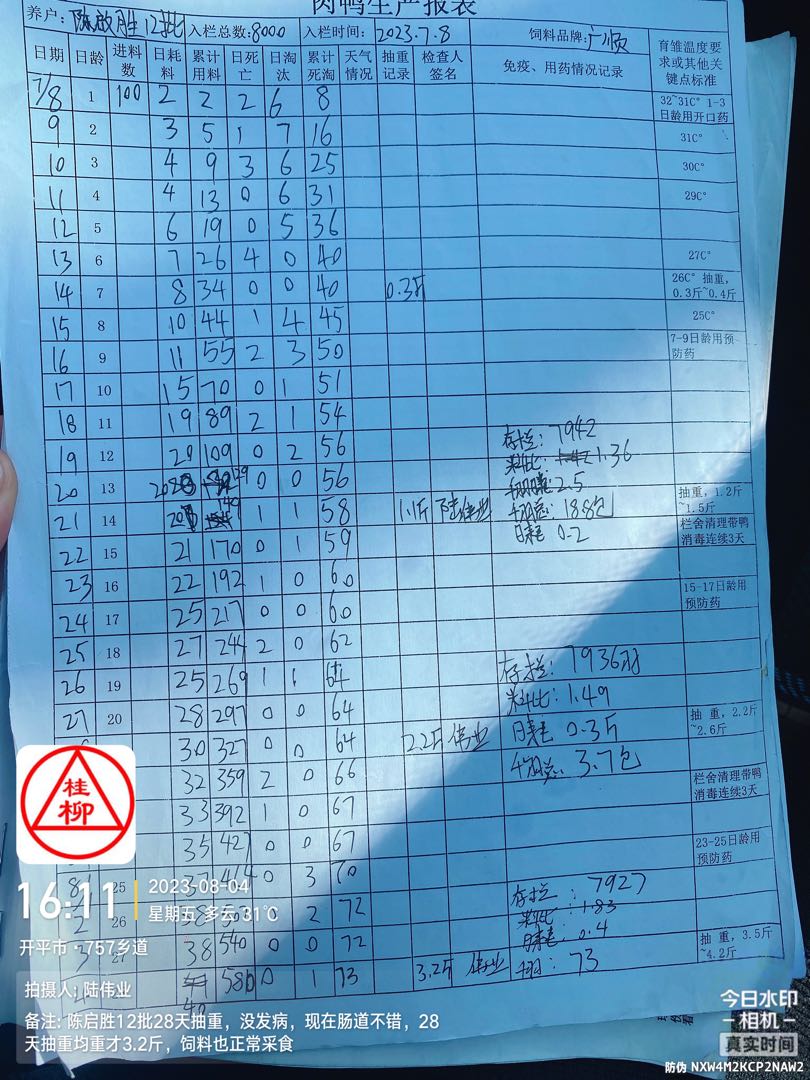 肉鸭生产报表
养户: 陈启胜12批 入栏总数:8000 入栏时间: 2023.7.8 饲料品牌:广顺
日期 日龄 进料数 日耗料 累计用料 日死亡 日淘汰 累计死淘 天气情况 抽重记录 检查人签名 免疫、用药情况记录 育雏温度要求或其他关键点标准
7/8 1 100 2 2 2 6 8 32~31C° 1-3日龄用开口药
9 2 3 5 1 7 16 31C°
10 3 4 9 3 6 25 30C°
11 4 4 13 0 6 31 29C°
12 5 6 19 0 5 36
13 6 7 26 4 0 40 27C°
14 7 8 34 0 0 40 0.3斤 26C° 抽重,0.3斤~0.4斤
15 8 10 44 1 4 45 25C°
16 9 11 55 2 3 50 7-9日龄用预防药
17 10 15 70 0 1 51
18 11 19 89 2 1 54
19 12 20 109 0 2 56 存栏: 7942
料比: 1.36
20 13 20 129 0 0 56 2.5
21 14 20 149 1 1 58 1.1斤 陆伟业 188包 抽重,1.2斤~1.5斤
22 15 21 170 0 1 59 日耗 0.2 栏舍清理带鸭消毒连续3天
23 16 22 192 1 0 60 15-17日龄用预防药
24 17 25 217 0 0 60
25 18 27 244 2 0 62
26 19 25 269 1 1 64 存栏: 7936羽
料比: 1.49
27 20 28 297 0 0 64 日耗 0.3斤 抽 重,2.2斤~2.6斤
30 327 0 0 64 2.2斤 伟业 千羽总: 3.7包
32 359 2 0 66 栏舍清理带鸭消毒连续3天
33 392 1 0 67
35 427 0 0 67 23-25日龄用预防药
25 0 3 70 存栏: 7927
2 26 2 72 料比: 1.83
3 27 38 540 0 0 72 日耗: 0.4 抽 重,3.5斤~4.2斤
4 40 580 0 1 73 3.2斤 伟业 千羽: 73
桂柳
16:11 2023-08-04
星期五 多云 31℃
开平市·757乡道
拍摄人: 陆伟业
备注: 陈启胜12批28天抽重，没发病，现在肠道不错，28
天抽重均重才3.2斤，饲料也正常采食
今日水印
-相机-
真实时间
防伪 NXW4M2KCP2NAW2